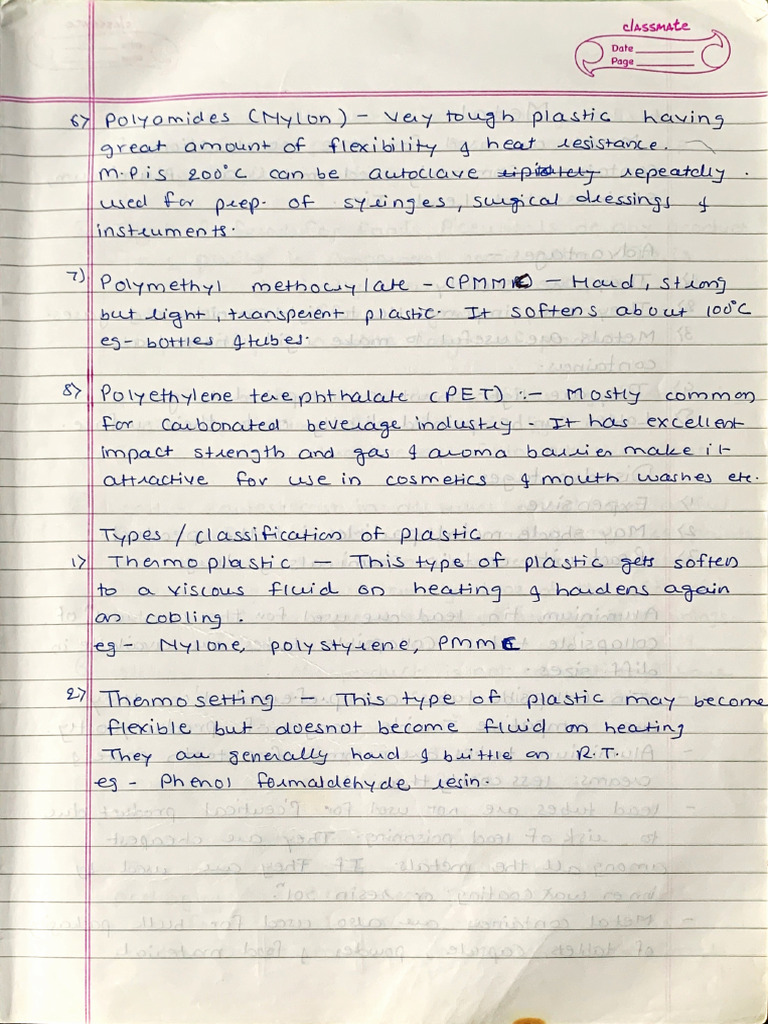 classmate
Date
Page
6) Polyamides (Nylon) - Very tough plastic having
great amount of flexibility & heat resistance.
M.P is 200°C can be autoclave repeatdly.
used for prep. of syringes, surgical dressings &
instruments.
7) Polymethyl methocrylate - (PMMC - Hard, strong
but light, transperent plastic. It softens about 100°C
eg- bottles & tubes.
8) Polyethylene terephthalate (PET) :- Mostly common
for carbonated beverage industry. It has excellent
impact strength and gas & aroma barrier make it
attractive for use in cosmetics & mouth washes etc.
Types / classification of plastic
1) Thermoplastic - This type of plastic gets soften
to a viscous fluid on heating & hardens again
on cooling.
eg- Nylone, polystyrene, PMMC
2) Thermosetting - This type of plastic may become
flexible but doesnot become fluid on heating
They are generally hard & brittle on R.T.
eg - Phenol formaldehyde resin.